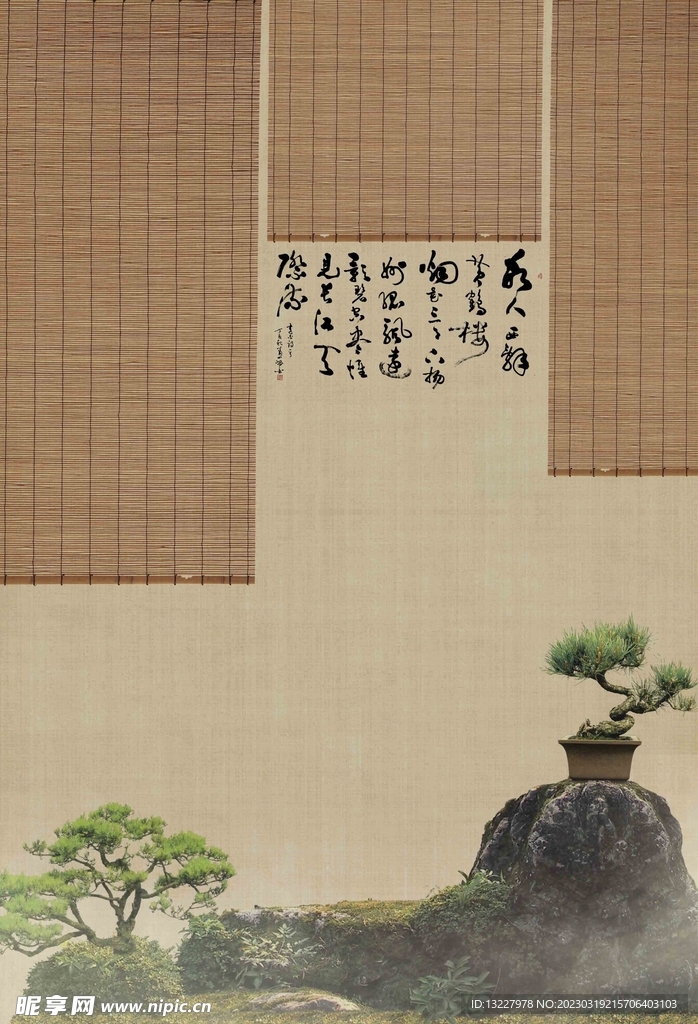 故人西辭
黄鶴楼
烟花三月下揚
州孤帆遠
影碧空盡惟
見長江天
際流
昵享网 www.nipic.cn
ID:13227978 NO:20230319215706403103